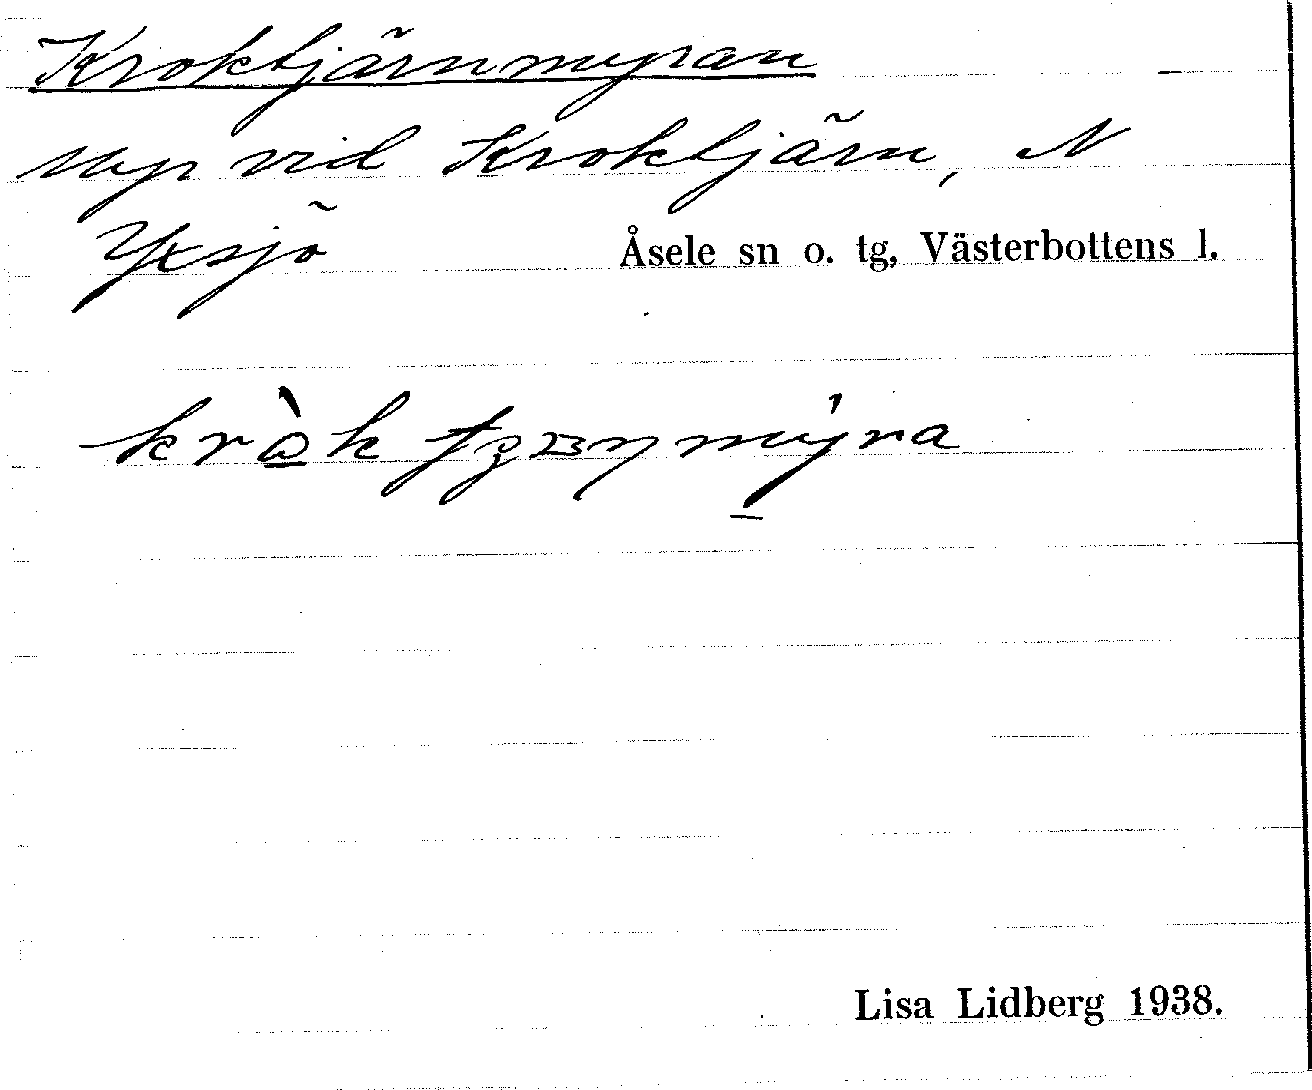 Kroktjärnmyran
myr vid Kroktjärn, N
Yxsjö Åsele sn o. tg, Västerbottens l.
Lisa Lidberg 1938.